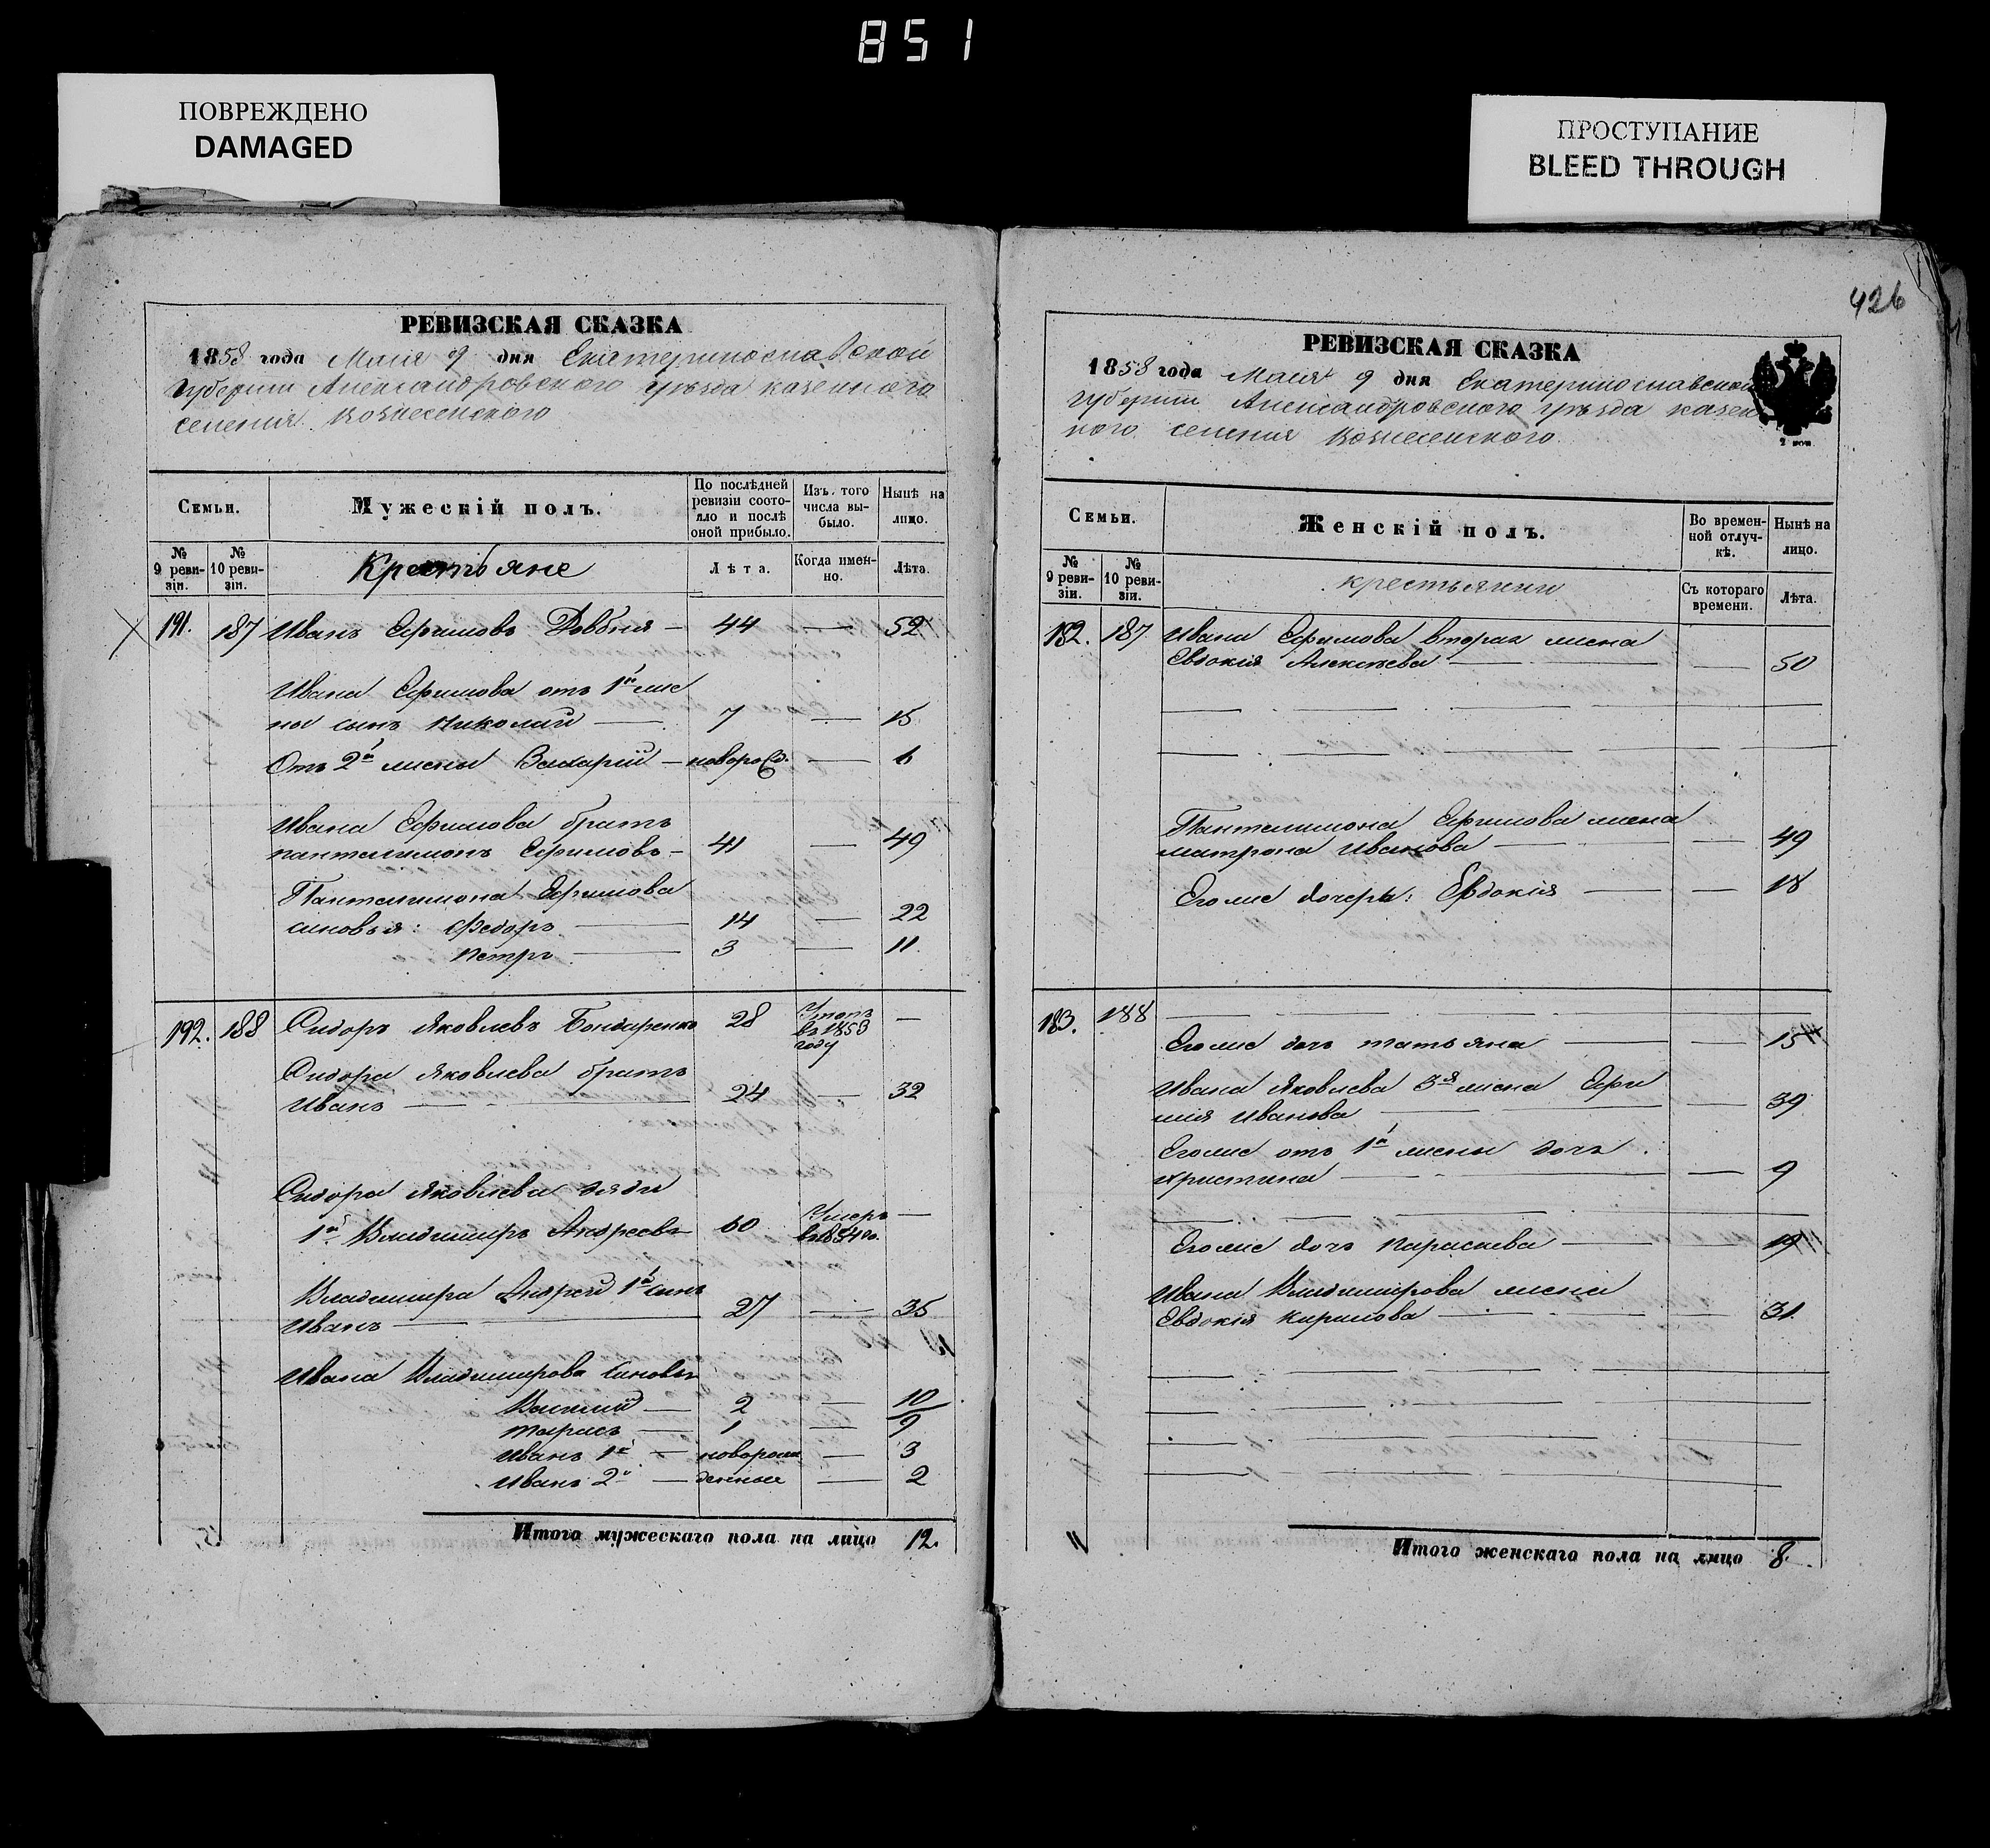 851
ПОВРЕЖДЕНО
DAMAGED
ПРОСТУПАНИЕ
BLEED THROUGH
РЕВИЗСКАЯ СКАЗКА
1858 года Маия 9 дня Екатеринославской
губернии Александровского уѣзда казенного
селения Вознесенского
Семьи.
Мужескій полъ.
По послѣдней
ревизіи состо-
яло и послѣ
оной прибыло.
Изъ того
числа вы-
было.
Нынѣ на
лицо.
№
9 реви-
зіи.
№
10 реви-
зіи.
Крестьяне
Лѣта.
Когда имен-
но.
Лѣта.
191. 187 Иванъ Ефимовъ Довбня — 44 — 52
Ивана Ефимова отъ 1й же
ны сынъ Николай — 7 — 15
Отъ 2й жены — новорожд. — 6
Ивана Ефимова братъ
пантелимонъ Ефимовъ — 41 — 49
Пантелимона Ефимова
сыновья: Федоръ — 14 — 22
Петръ — 3 — 11.
192. 188 Сидоръ Яковлевъ Бондаренко 28
въ 1853
году —
Сидора Яковлева братъ
Иванъ — 24 — 32
Сидора Яковлева дяди
1й Владимиръ Андреевъ 60 Умеръ —
Владимира Андреев 1й сынъ
Иванъ — 27 — 35
Ивана Владимирова сыновья
Василий — 2 — 10
тарасъ — 1 — 9
Иванъ 1й — новорож — 3
Иванъ 2й — денные — 2
Итого мужескаго пола на лицо 12.
426
РЕВИЗСКАЯ СКАЗКА
1858 года Маия 9 дня Екатеринославской
губернии Александровского уѣзда казен
ного селения Вознесенского.
2 коп.
Семьи.
Женскій полъ.
Во времен-
ной отлуч-
кѣ.
Нынѣ на
лицо.
№
9 реви-
зіи.
№
10 реви-
зіи.
крестьянки
Съ котораго
времени.
Лѣта.
182. 187 Ивана Ефимова вторая жена
Евдокія Алексѣева — — 50
Пантелимона Ефимова жена
матрона Иванова — — 49
Его же дочерь: Евдокія — — 18
183. 188
Его же дочь татьяна — — 15
Ивана Яковлева 3я жена Ефи
мія Иванова — — 39
Его же отъ 1й жены дочь
христина — — 9
Его же дочь Парасковия — 19
Ивана Владимирова жена
Евдокія Кирилова — — 31.
Итого женскаго пола на лицо 8.